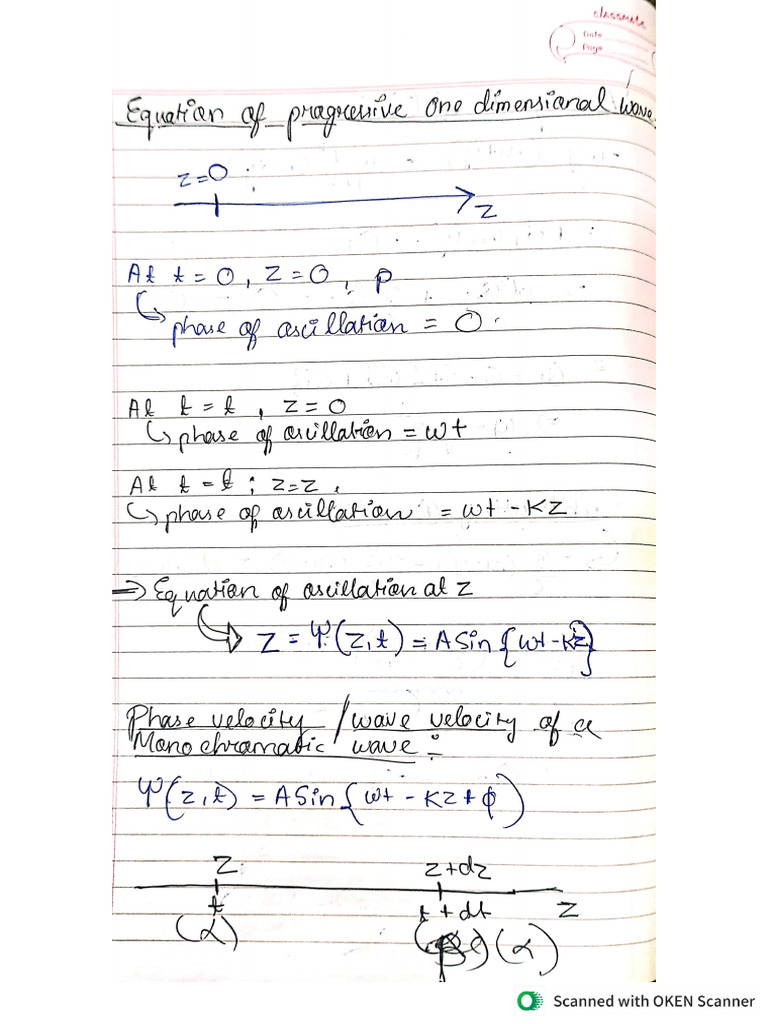 classmate
Date
Page
Equation of progressive one dimensional wave
z=0
z
At t = 0, z = 0, P
phase of oscillation = 0.
At t = t, z = 0
phase of oscillation = ωt
At t = t ; z=z.
phase of oscillation = ωt - Kz
⇒ Equation of oscillation at z
z = Ψ(z,t) = A Sin {ωt - Kz}
Phase velocity / wave velocity of a
Monochromatic wave :-
Ψ(z,t) = A Sin {ωt - Kz + φ)
z z+dz
t t + dt z
(α) (α)
Scanned with OKEN Scanner